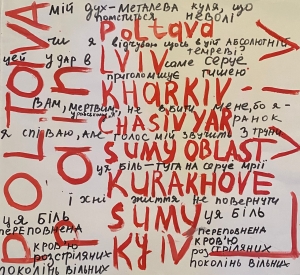 мій дух-металева куля, що
помститься неволі
Poltava
чи я відчуваю щось в цій абсолютній темреві?
цей удар в саме серце
LVIV
приголомшує тишею
KHARKIV
Вам, мертвим не вбити мене, бо я-
РАНОК
CHASIV YAR
я співаю, але голос мій звучить з труни
SUMY OBLAST
ця біль-туга на серце мрії
KURAKHOVE
їхні життя не повернути
SUMY
ця біль
переповнена
кров'ю
розстріляних
поколінь вільних
KYIV
ця біль
переповнена
кров'ю
розстріляних
поколінь вільних
POLTOVA